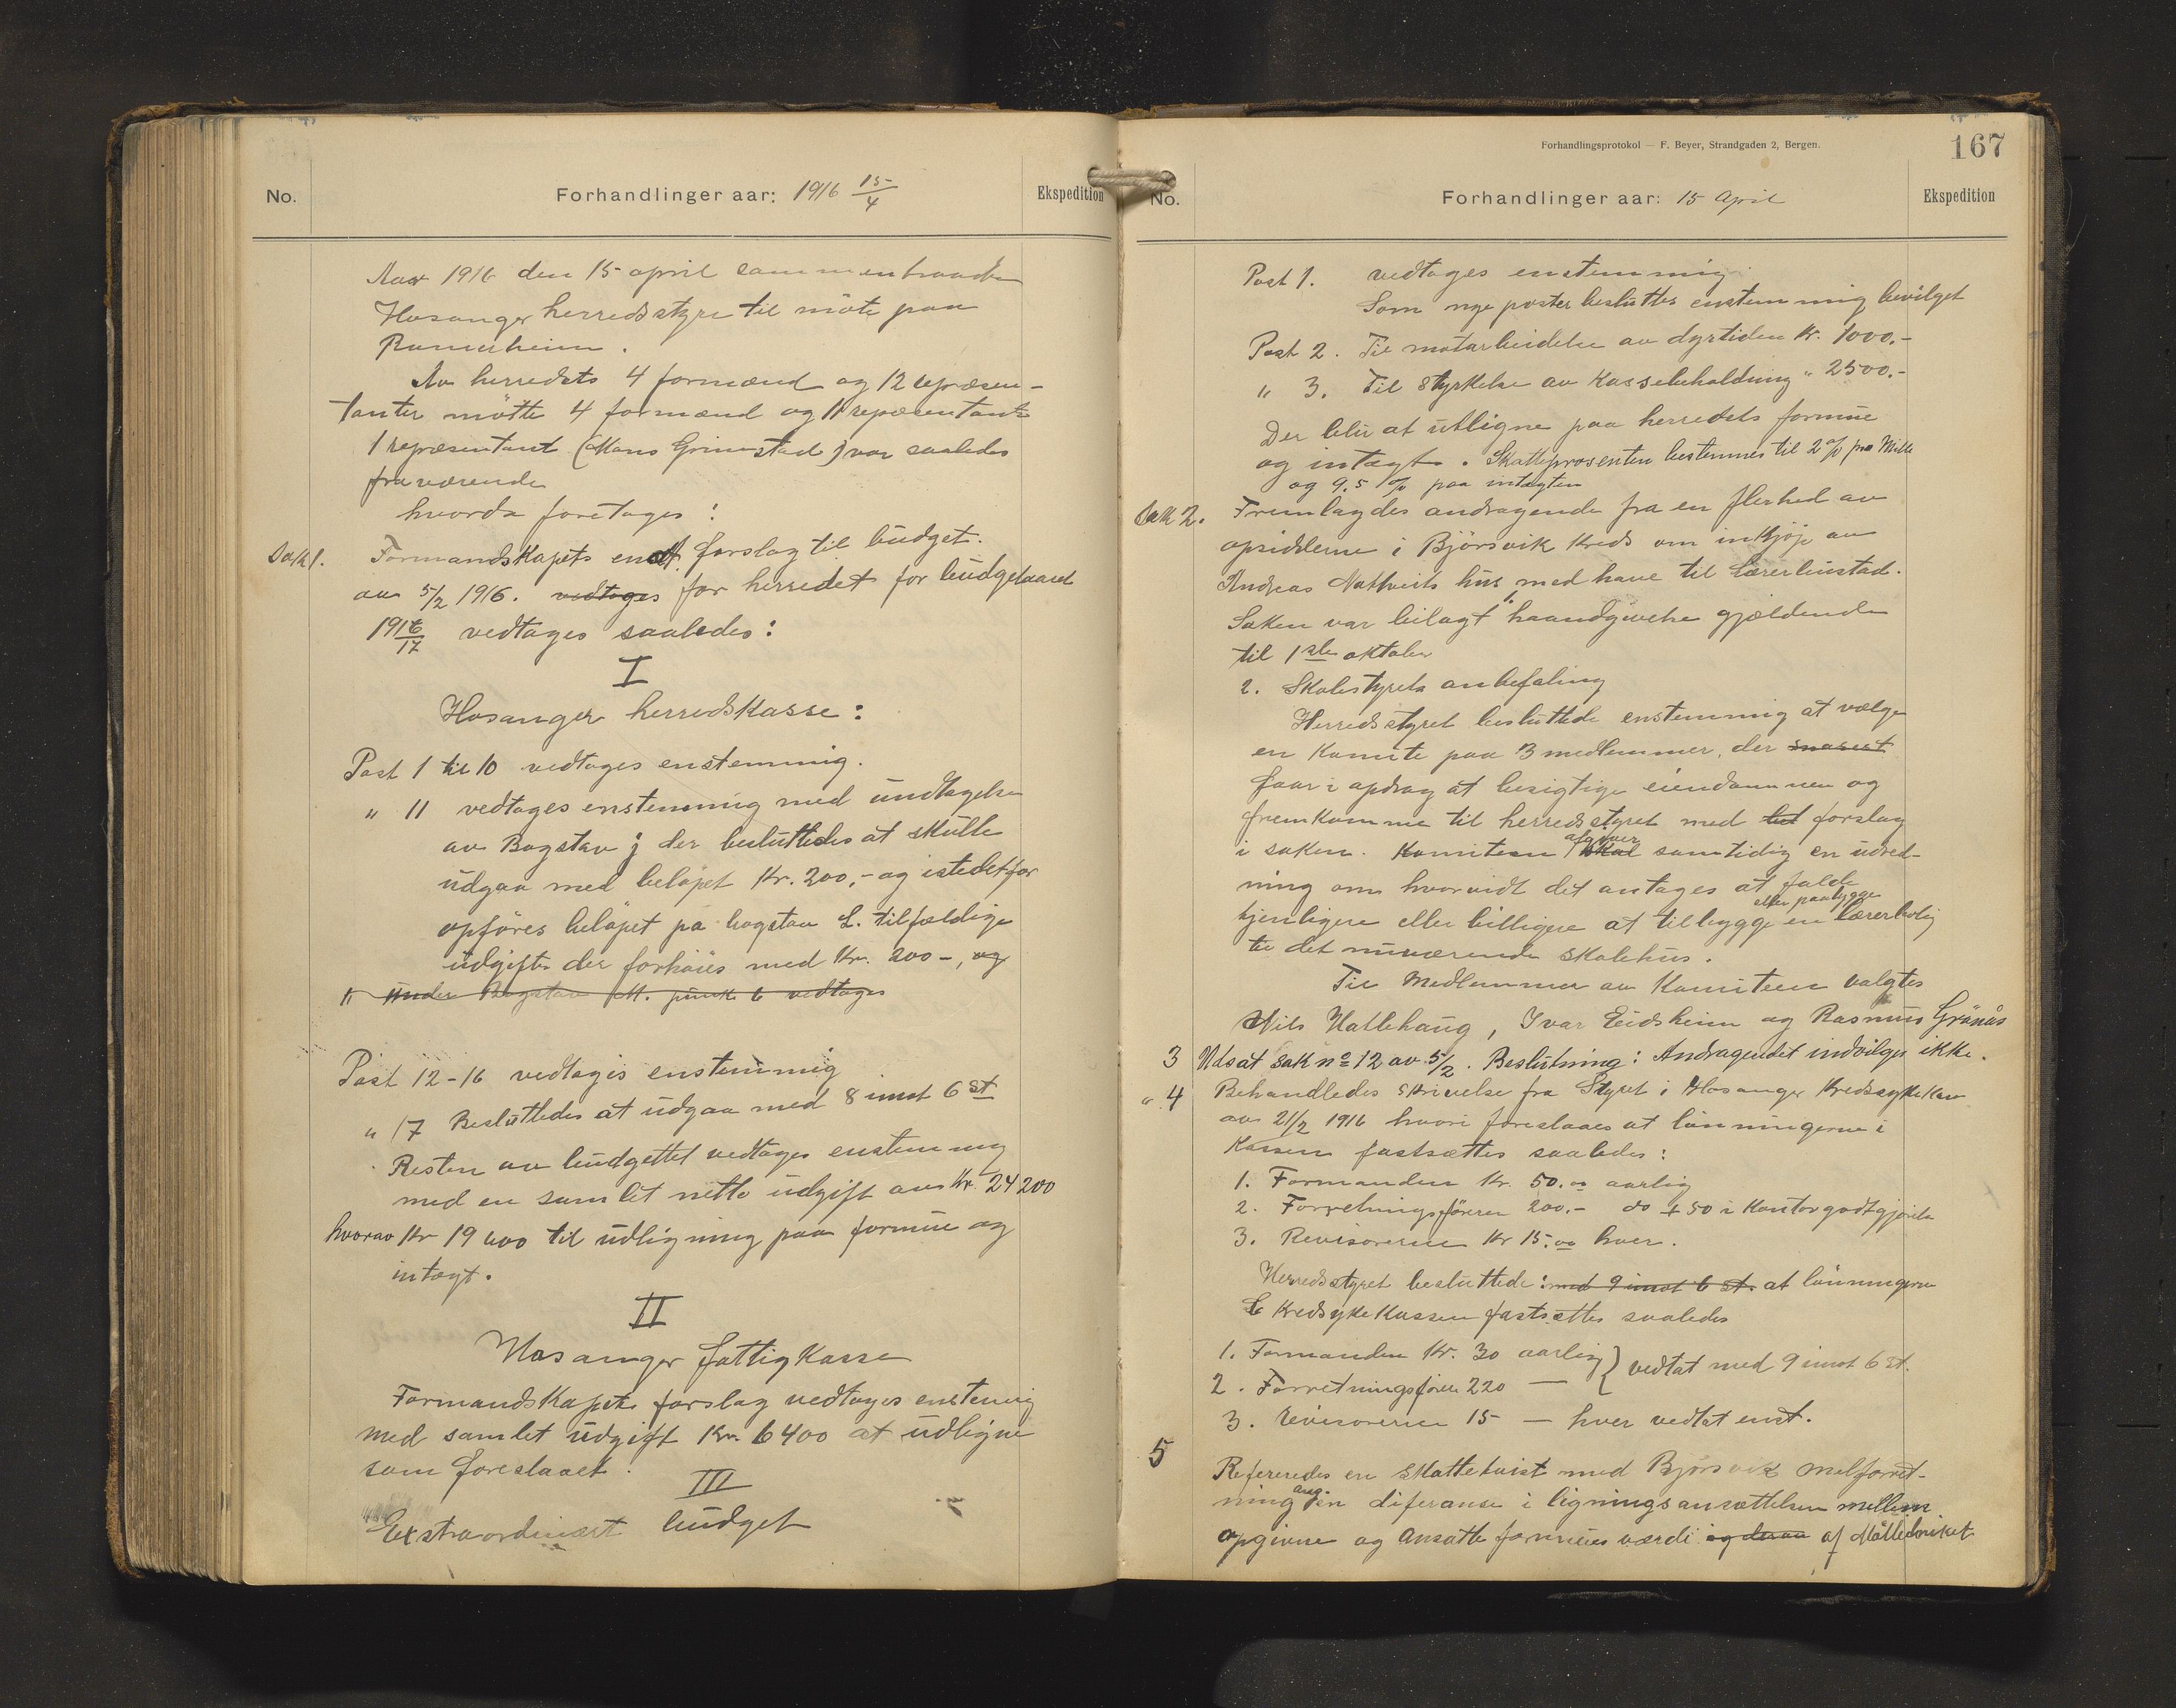 No. Forhandlinger aar: 1916 15/4 Ekspedition
Aar 1916 den 15 april sammentraadte
Hosanger herredsstyre til möte paa
Romerheim.
Av herredets 4 formænd og 12 repræsen-
tanter mötte 4 formænd og 11 repræsentanter
1 repræsentant (Mons Grimstad) var saaledes
fraværende
hvorda foretages:
Sak 1. Formandskapets enst. forslag til budget.
av 5/2 1916. vedtages for herredet for budgetaaret
1916/17 vedtages saaledes:
I
Hosanger herredskasse:
Post 1 til 10 vedtages enstemmig.
" 11 vedtages enstemmig med undtagelse
av Bogstav j der besluttedes at skulle
udgaa med beløpet Kr. 200,- og istedetfor
opföres belöpet på bogstav L. tilfældige
udgifter der forhöies med Kr. 200-, og
" Under Bogstav M. punkt 6 vedtages
Post 12-16 vedtages enstemmig
" 17 Besluttedes at udgaa med 8 imot 6 st
Resten av budgettet vedtages enstemmig
med en samlet netto udgift av Kr. 24200
hvorav Kr 19600 til udligning paa formue og
intægt.
II
Hosanger fattigkasse
Formandskapets forslag vedtages enstemig
med samlet udgift Kr. 6400 at udligne
som foreslaaet.
III
Extraordinært budget
Forhandlingsprotokol — F. Beyer, Strandgaden 2, Bergen.
167
No. Forhandlinger aar: 15 April Ekspedition
Post 1. vedtages enstemmig.
Som nye poster besluttes enstemmig bevilget
Post 2. Til motarbeidelse av dyrtiden Kr. 1000.-
" 3. Til Styrkelse av Kassebeholdning " 2500.-
Der blir at utligne paa herredets formue
og intægt. Skatteprosenten bestemmes til 2 o/o pro Mille
og 9,5 % paa intægten
Sak 2. Fremlagdes andragende fra en flerhed av
opsidderne i Björsvik Kreds om inkjöp av
Andreas Nathveits hus med have til Lærerbustad.
Saken var bilagt 1. haandgivelse gjældende
til 1ste oktober
2. Skolestyrets anbefaling
Herredsstyret besluttede enstemmig at vælge
en Komite paa 3 medlemmer, der snarest
faar i opdrag at besigtige eiendommen og
fremkomme til herredsstyret med sit forslag
i saken. Komiteen skal afgiver samtidig en udred-
ning om hvorvidt det antages at falde
tjenligere eller billigere at tilbygge eller paabygge en lærerbolig
til det nuværende skolehus.
Til Medlemmer av Komiteen valgtes
Nils Hatlehaug, Ivar Eidsheim og Rasmus Grönås
3 Utsat sak no 12 av 5/2. Beslutning: Andragendet indvilges ikke.
" 4 Behandledes skrivelse fra Styret i Hosanger Kredssykekasse
av 21/2 1916 hvori foreslaaes at lönningerne i
Kassen fastsættes saaledes:
1. Formanden Kr. 50.00 aarlig
2. Forretningsföreren 200.- do + 50 i Kontorgodtgjörelse
3. Revisorerne Kr 15.00 hver.
Herredsstyret besluttede: med 9 imot 6 st. at lönningerne
i Kredsykekassen fastsættes saaledes
1. Formanden Kr. 30 aarlig } vedtat med 9 imot 6 st.
2. Forretningsfören 220 —
3. Revisorerne 15 — hver vedtat enst.
5 Refereredes en skattetvist med Bjørsvik melforret-
ning ang. en diferanse i ligningsansættelsen mellem
opgivne og ansatte formues værdi og derav af Möllebruket